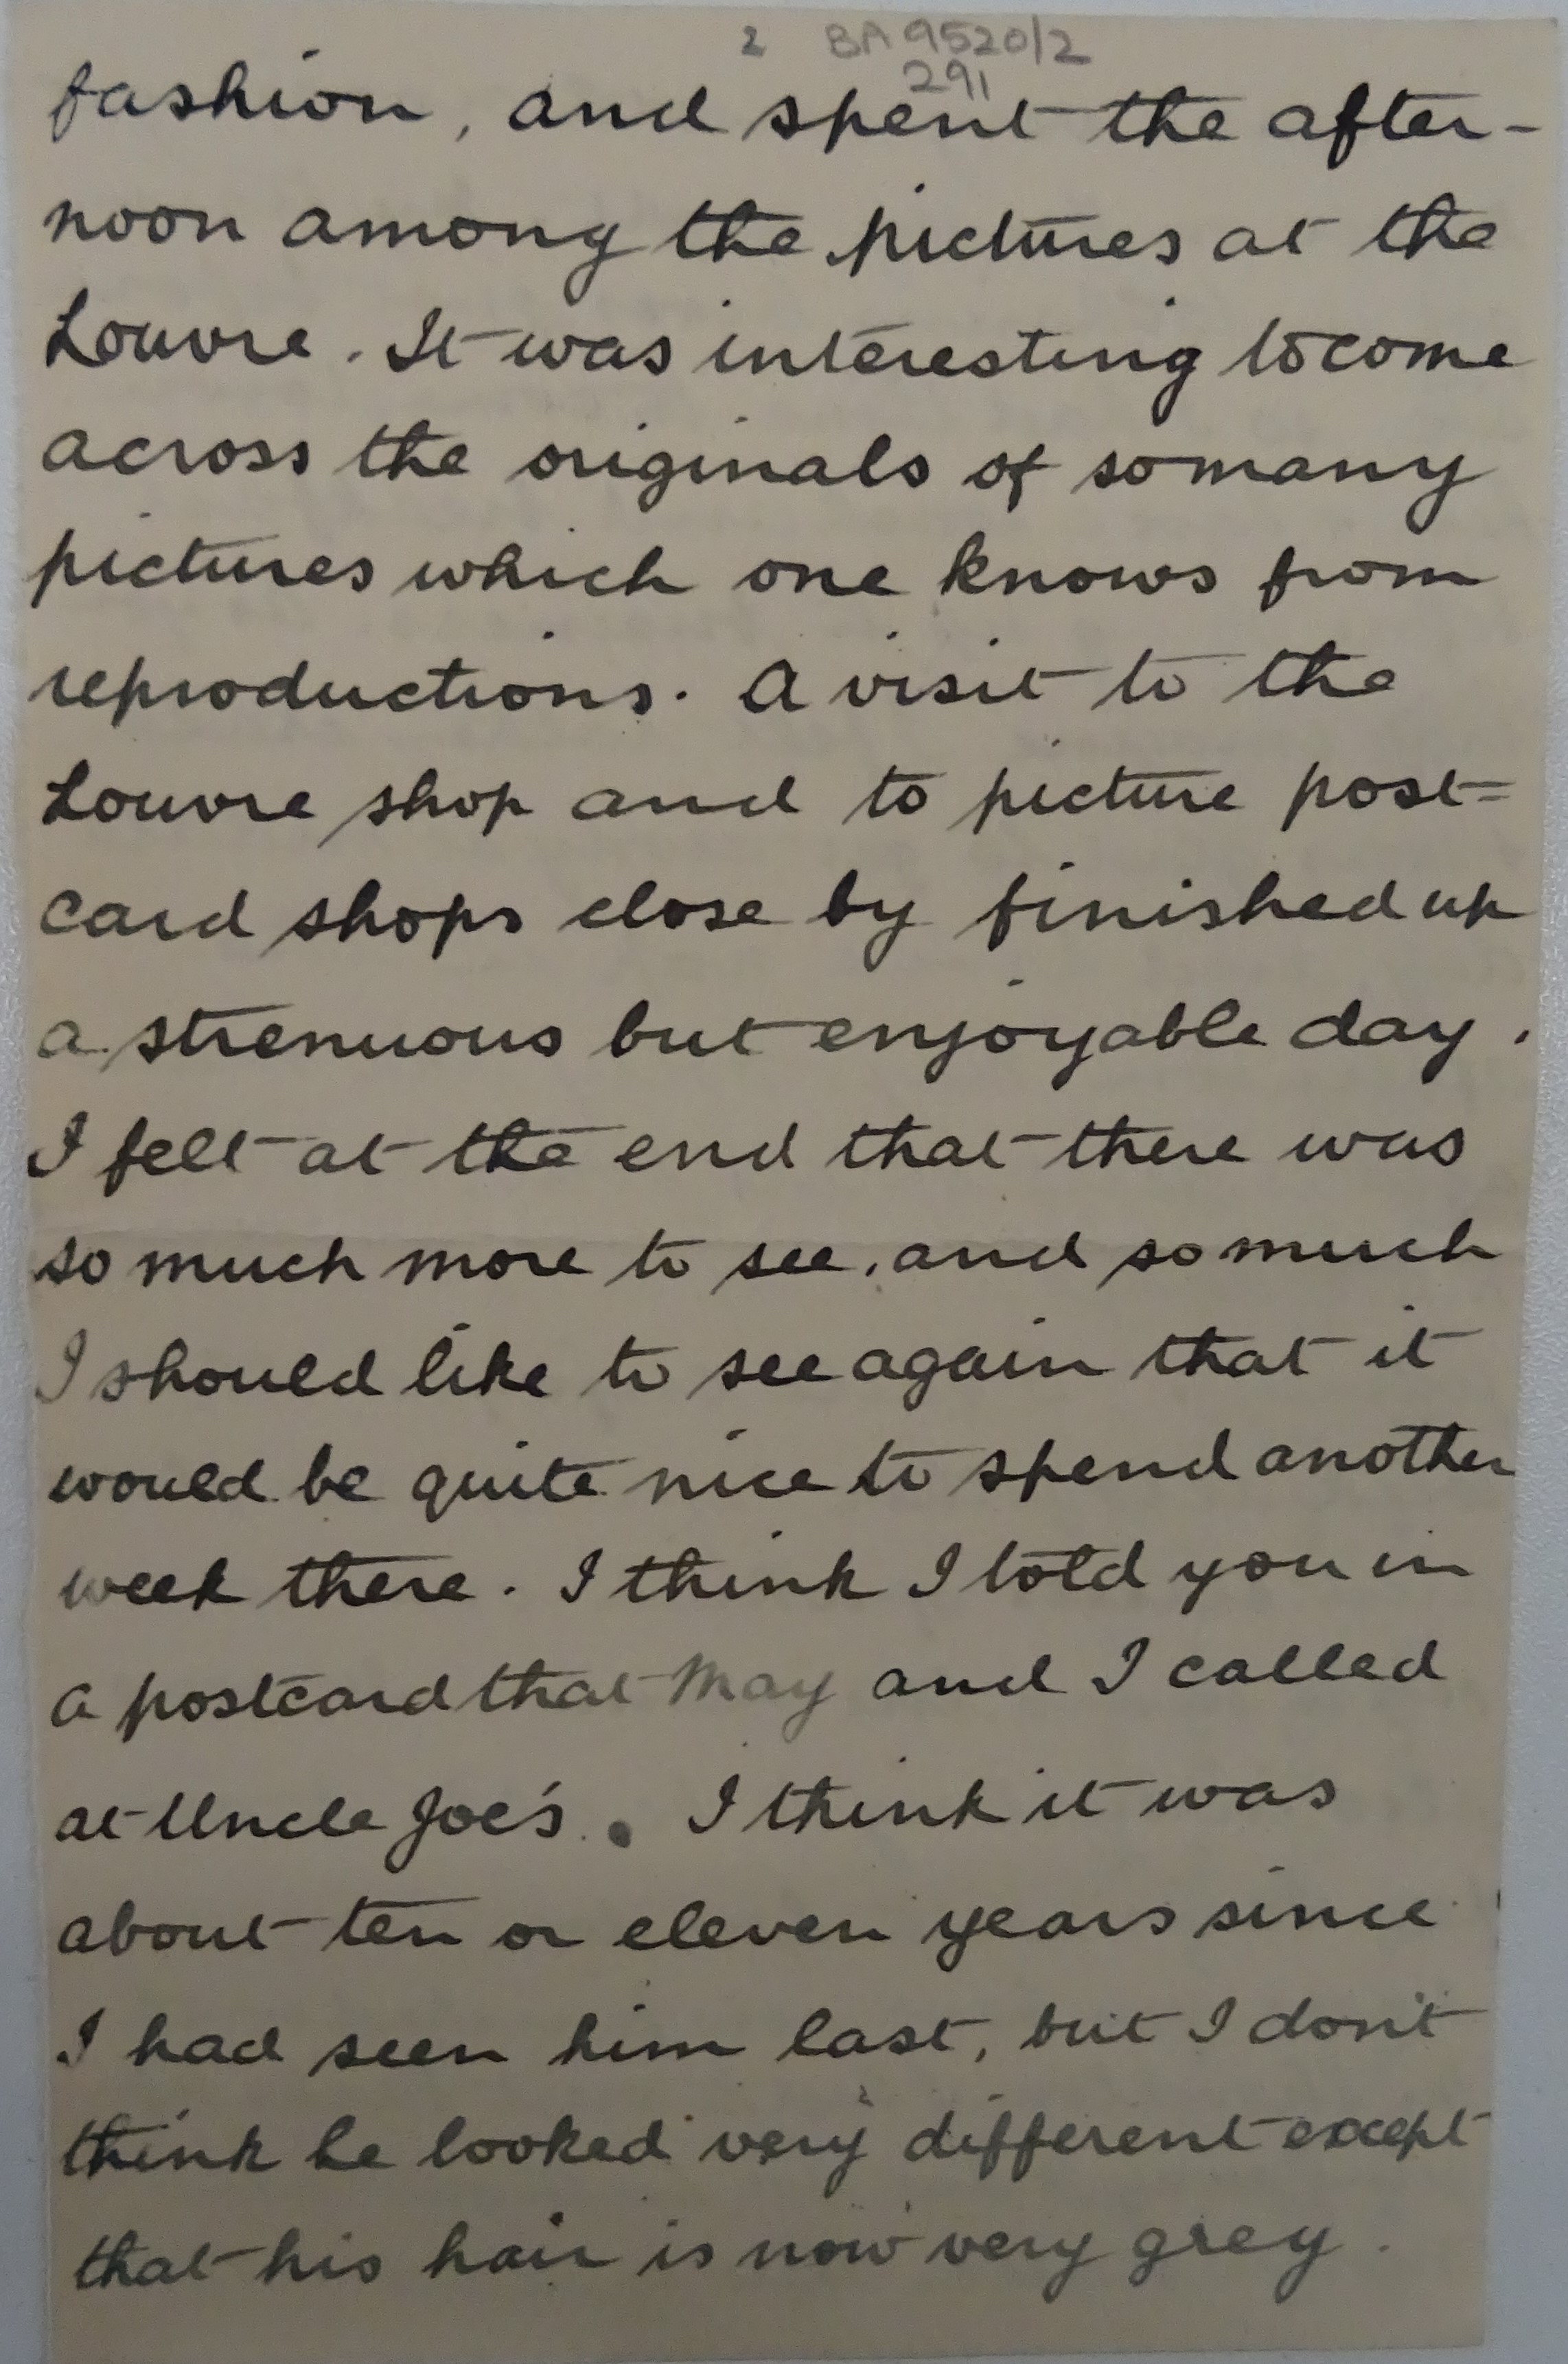 2 BA 9520/2
291
fashion, and spent the after-
noon among the pictures at the
Louvre. It was interesting to come
across the originals of so many
pictures which one knows from
reproductions. A visit to the
Louvre shop and to picture post=
card shops close by finished up
a strenuous but enjoyable day.
I felt at the end that there was
so much more to see, and so much
I should like to see again that it
would be quite nice to spend another
week there. I think I told you in
a postcard that May and I called
at Uncle Joe's. I think it was
about ten or eleven years since
I had seen him last, but I don't
think he looked very different except
that his hair is now very grey.